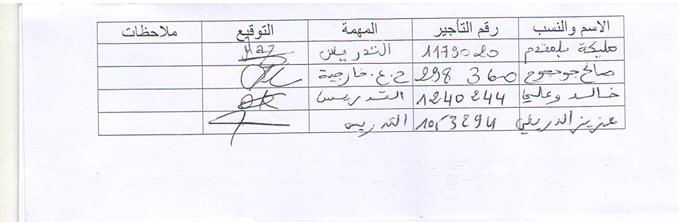 الاسم والنسب رقم التأجير المهمة التوقيع ملاحظات
مليكة بلمقدم 1179020 التدريس
صالح جوجوح 298360 ح.ع.خارجية
خالد وعلي 1240244 التدريس
عزيز الدريعي 1053294 التدريس